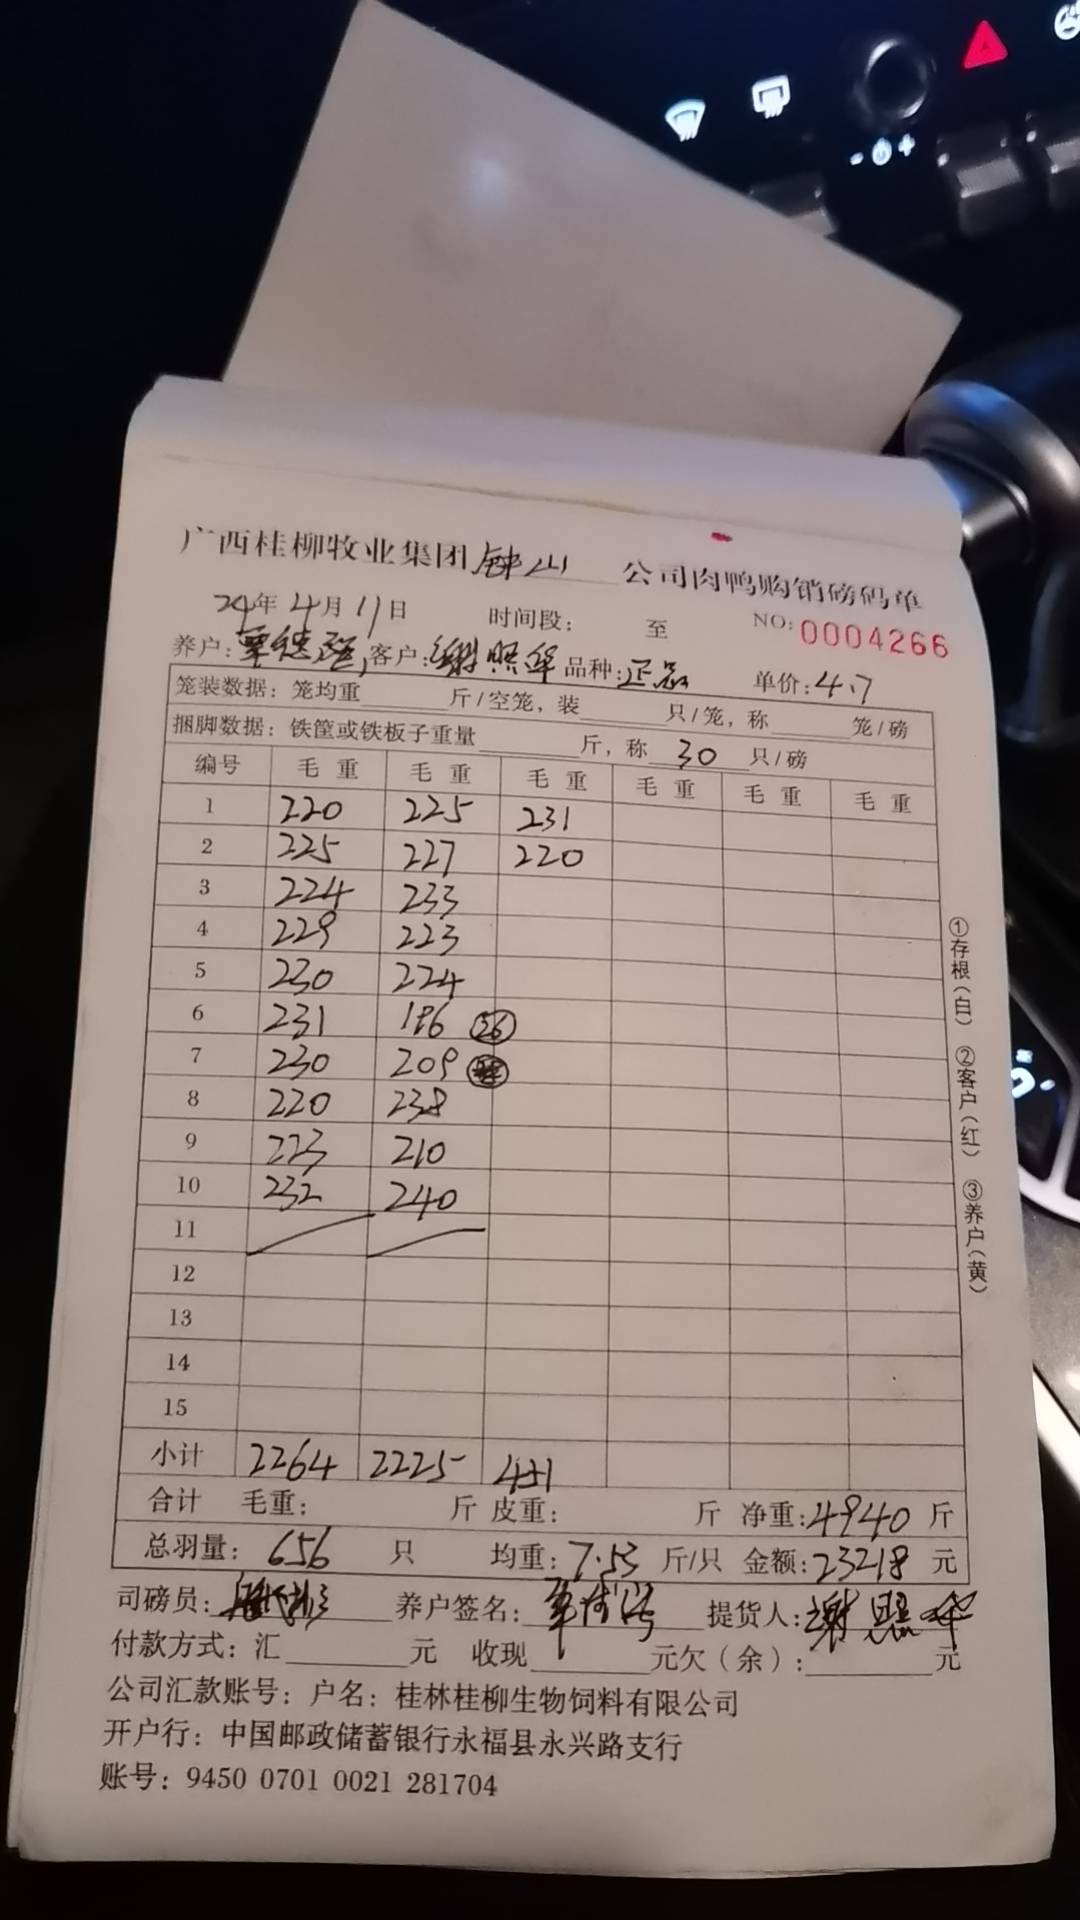 广西桂柳牧业集团钟山公司肉鸭购销磅码单
24年4月11日 时间段: 至 NO: 0004266
养户: 客户:谢照华 品种:正品 单价:4.7
笼装数据: 笼均重 斤/空笼, 装 只/笼, 称 笼/磅
捆脚数据: 铁筐或铁板子重量 斤, 称 30 只/磅
编号 毛重 毛重 毛重 毛重 毛重 毛重
1 220 225 231
2 225 227 220
3 224 233
4 229 223
5 230 224
6 231 186 26
7 230 209
8 220 238
9 223 210
10 232 240
11
12
13
14
15
小计 2264 2225 451
合计 毛重: 斤 皮重: 斤 净重:4940 斤
总羽量: 656 只 均重:7.53 斤/只 金额:23218 元
司磅员: 养户签名: 提货人:谢照华
付款方式: 汇 元 收现 元欠(余): 元
公司汇款账号: 户名: 桂林桂柳生物饲料有限公司
开户行: 中国邮政储蓄银行永福县永兴路支行
账号: 9450 0701 0021 281704
①存根(白) ②客户(红) ③养户(黄)